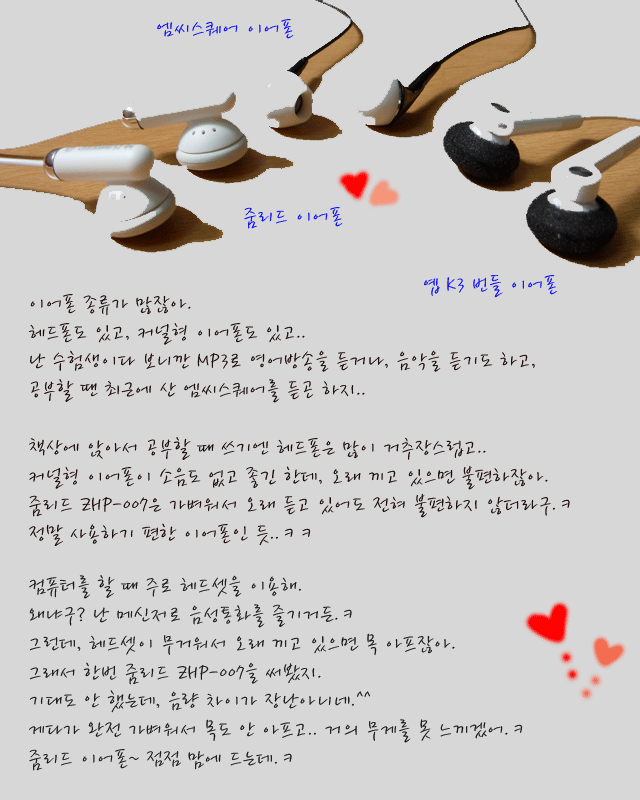 엠씨스퀘어 이어폰
줌리드 이어폰
옙 K3 번들 이어폰
이어폰 종류가 많잖아.
헤드폰도 있고, 커널형 이어폰도 있고..
난 수험생이다 보니깐 MP3로 영어방송을 듣거나, 음악을 듣기도 하고,
공부할 땐 최근에 산 엠씨스퀘어를 듣곤 하지..
책상에 앉아서 공부할 때 쓰기엔 헤드폰은 많이 거추장스럽고..
커널형 이어폰이 소음도 없고 좋긴 한데, 오래 끼고 있으면 불편하잖아.
줌리드 ZHP-007은 가벼워서 오래 듣고 있어도 전혀 불편하지 않더라구.ㅋ
정말 사용하기 편한 이어폰인 듯..ㅋㅋ
컴퓨터를 할 때 주로 헤드셋을 이용해.
왜냐구? 난 메신저로 음성통화를 즐기거든.ㅋ
그런데, 헤드셋이 무거워서 오래 끼고 있으면 목 아프잖아.
그래서 한번 줌리드 ZHP-007을 써봤지.
기대도 안 했는데, 음량 차이가 장난아니네.^^
게다가 완전 가벼워서 목도 안 아프고.. 거의 무게를 못 느끼겠어.ㅋ
줌리드 이어폰~ 점점 맘에 드는데.ㅋ